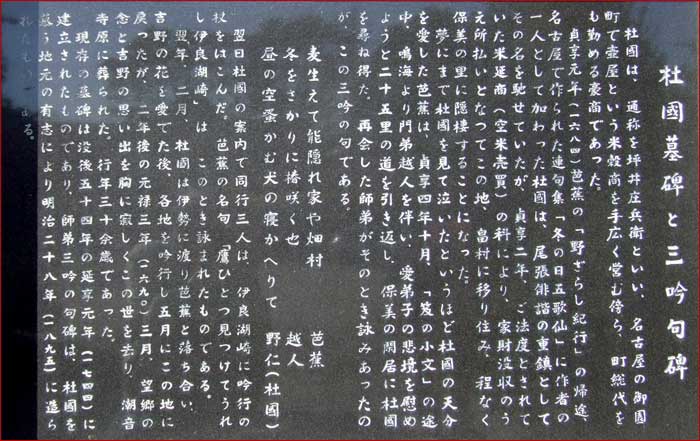 杜國墓碑と三吟句碑
杜國は、通称を坪井庄兵衛といい、名古屋の御園
町で壷屋という米穀商を手広く営む傍ら、町総代を
も勤める豪商であった。
貞享元年(一六八四)芭蕉の「野ざらし紀行」の帰途、
名古屋で作られた連句集「冬の日五歌仙」に作者の
一人として加わった杜國は、尾張俳諧の重鎮として
その名を馳せていたが、貞享二年、ご法度とされて
いた米延商(空米売買)の科により、家財没収のう
え所払いとなってこの地、畠村に移り住み、程なく
保美の里に隠棲することになった。
夢にまで杜國を見て泣いたというほど杜國の天分
を愛した芭蕉は、貞享四年十月、「笈の小文」の途
中、鳴海より門弟越人を伴い、愛弟子の悲境を慰め
ようと二十五里の道を引き返し、保美の閑居に杜國
を尋ね得た。再会した師弟がそのとき詠みあったの
が、この三吟の句である。
麦生えて能隠れ家や畑村 芭蕉
冬をさかりに椿咲く也 越人
昼の空蚤かむ犬の寝かへりて 野仁(杜國)
翌日杜國の案内で同行三人は、伊良湖崎に吟行の
杖をはこんだ。芭蕉の名句「鷹ひとつ見つけてうれ
し伊良湖崎」は このとき詠まれたものである。
翌年、二月、杜國は伊勢に渡り芭蕉と落ち合い、
吉野の花を愛でた後、各地を吟行し五月にこの地に
戻ったが、二年後の元禄三年(一六九〇)三月、望郷の
念と吉野の思い出を胸に寂しくこの世を去り、潮音
寺原に葬られた。行年三十余歳であった。
現存の墓碑は没後五十四年の延享元年(一七四四)に
建立されたものであり、師弟三吟の句碑は、杜國を
慕う地元の有志により明治二十八年(一八九五)に造ら
れたものである。